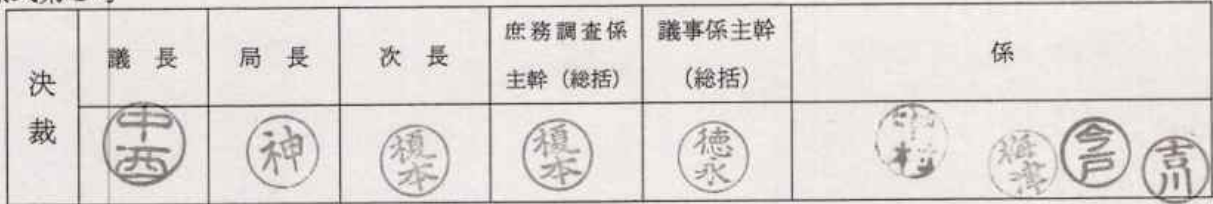 決裁
議長 局長 次長 庶務調査係主幹(総括) 議事係主幹(総括) 係
中西 神 榎本 榎本 徳永 今戸 吉川